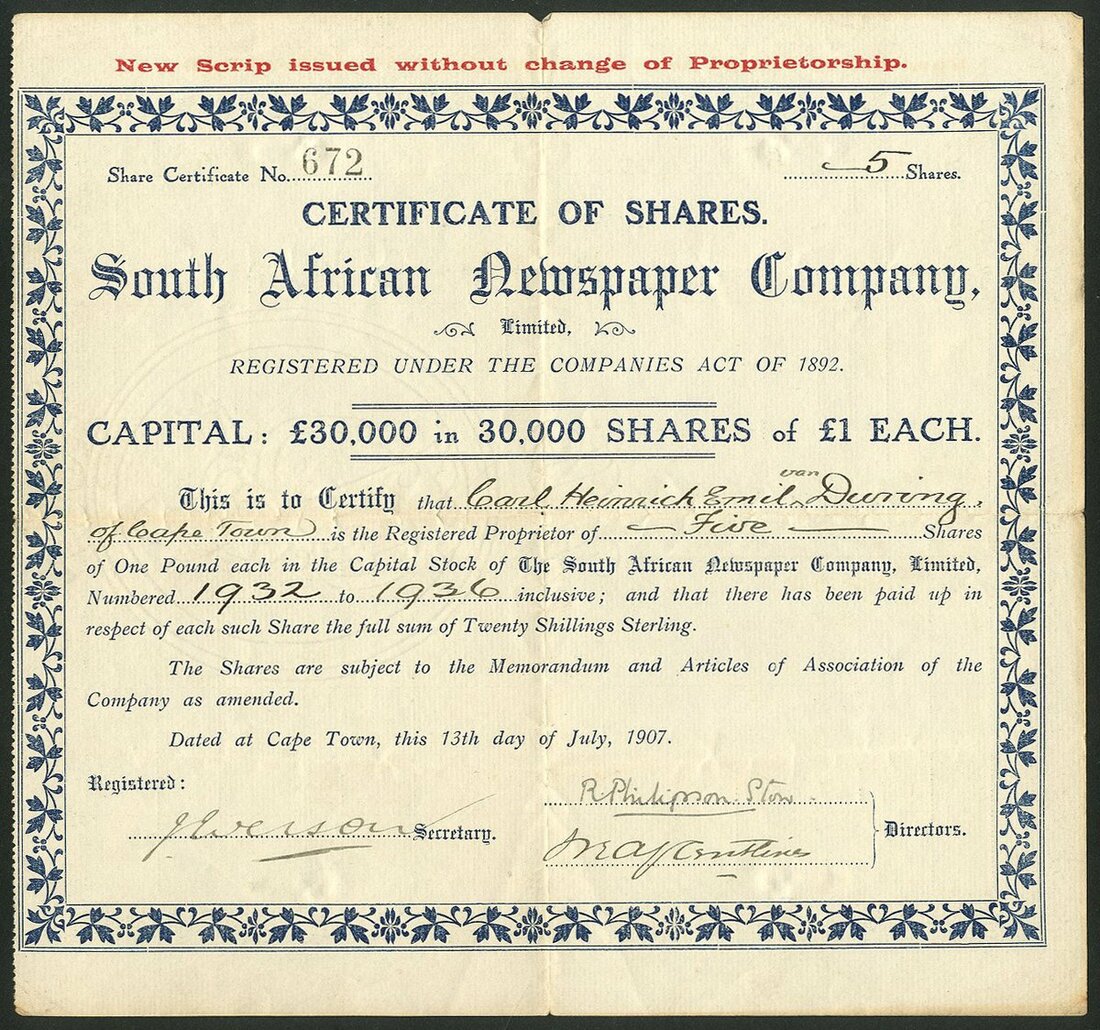 New Scrip issued without change of Proprietorship.
Share Certificate No. 672 5 Shares.
CERTIFICATE OF SHARES.
South African Newspaper Company,
Limited,
REGISTERED UNDER THE COMPANIES ACT OF 1892.
CAPITAL: £30,000 in 30,000 SHARES of £1 EACH.
van
This is to Certify that Carl Heinrich Emil During,
of Cape Town is the Registered Proprietor of Five Shares
of One Pound each in the Capital Stock of The South African Newspaper Company, Limited,
Numbered 1932 to 1936 inclusive; and that there has been paid up in
respect of each such Share the full sum of Twenty Shillings Sterling.
The Shares are subject to the Memorandum and Articles of Association of the
Company as amended.
Dated at Cape Town, this 13th day of July, 1907.
Registered:
R Philipson Stow
Secretary.
Directors.